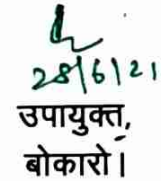 28/6/21
उपायुक्त,
बोकारो।